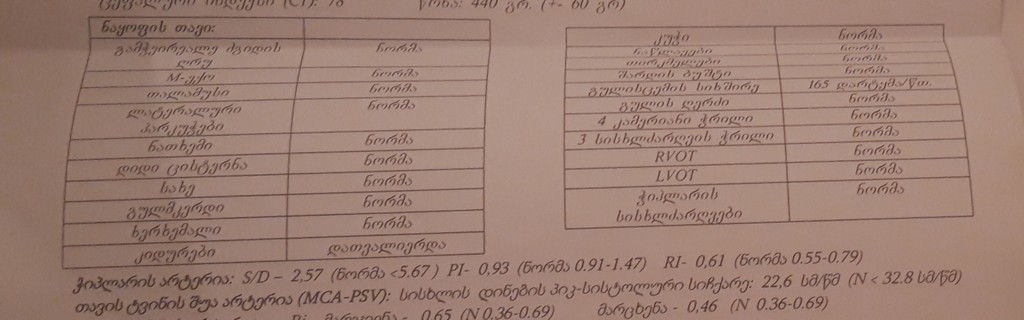 ცეფალური ინდექსი (CI): 78 წონა: 440 გრ. (+- 60 გრ)
ნაყოფის თავი:
გამჭვირვალე ძგიდის ღრუ ნორმა
M-ექო ნორმა
თალამუსი ნორმა
ლატერალური პარკუჭები ნორმა
ნათხემი ნორმა
დიდი ცისტერნა ნორმა
სახე ნორმა
გულმკერდი ნორმა
ხერხემალი ნორმა
კიდურები დათვალიერდა
კუჭი ნორმა
ნაწლავები ნორმა
თირკმელები ნორმა
შარდის ბუშტი ნორმა
გულისცემის სიხშირე 165 დარტყმა/წთ.
გულის ღერძი ნორმა
4 კამერიანი ჭრილი ნორმა
3 სისხლძარღვის ჭრილი ნორმა
RVOT ნორმა
LVOT ნორმა
ჭიპლარის სისხლძარღვები ნორმა
ჭიპლარის არტერია: S/D – 2,57 (ნორმა <5.67 ) PI- 0,93 (ნორმა 0.91-1.47) RI- 0,61 (ნორმა 0.55-0.79)
თავის ტვინის შუა არტერია (MCA-PSV): სისხლის დინების პიკ-სისტოლური სიჩქარე: 22,6 სმ/წმ (N < 32.8 სმ/წმ)
მარჯვენა - 0,65 (N 0.36-0.69) მარცხენა - 0,46 (N 0.36-0.69)